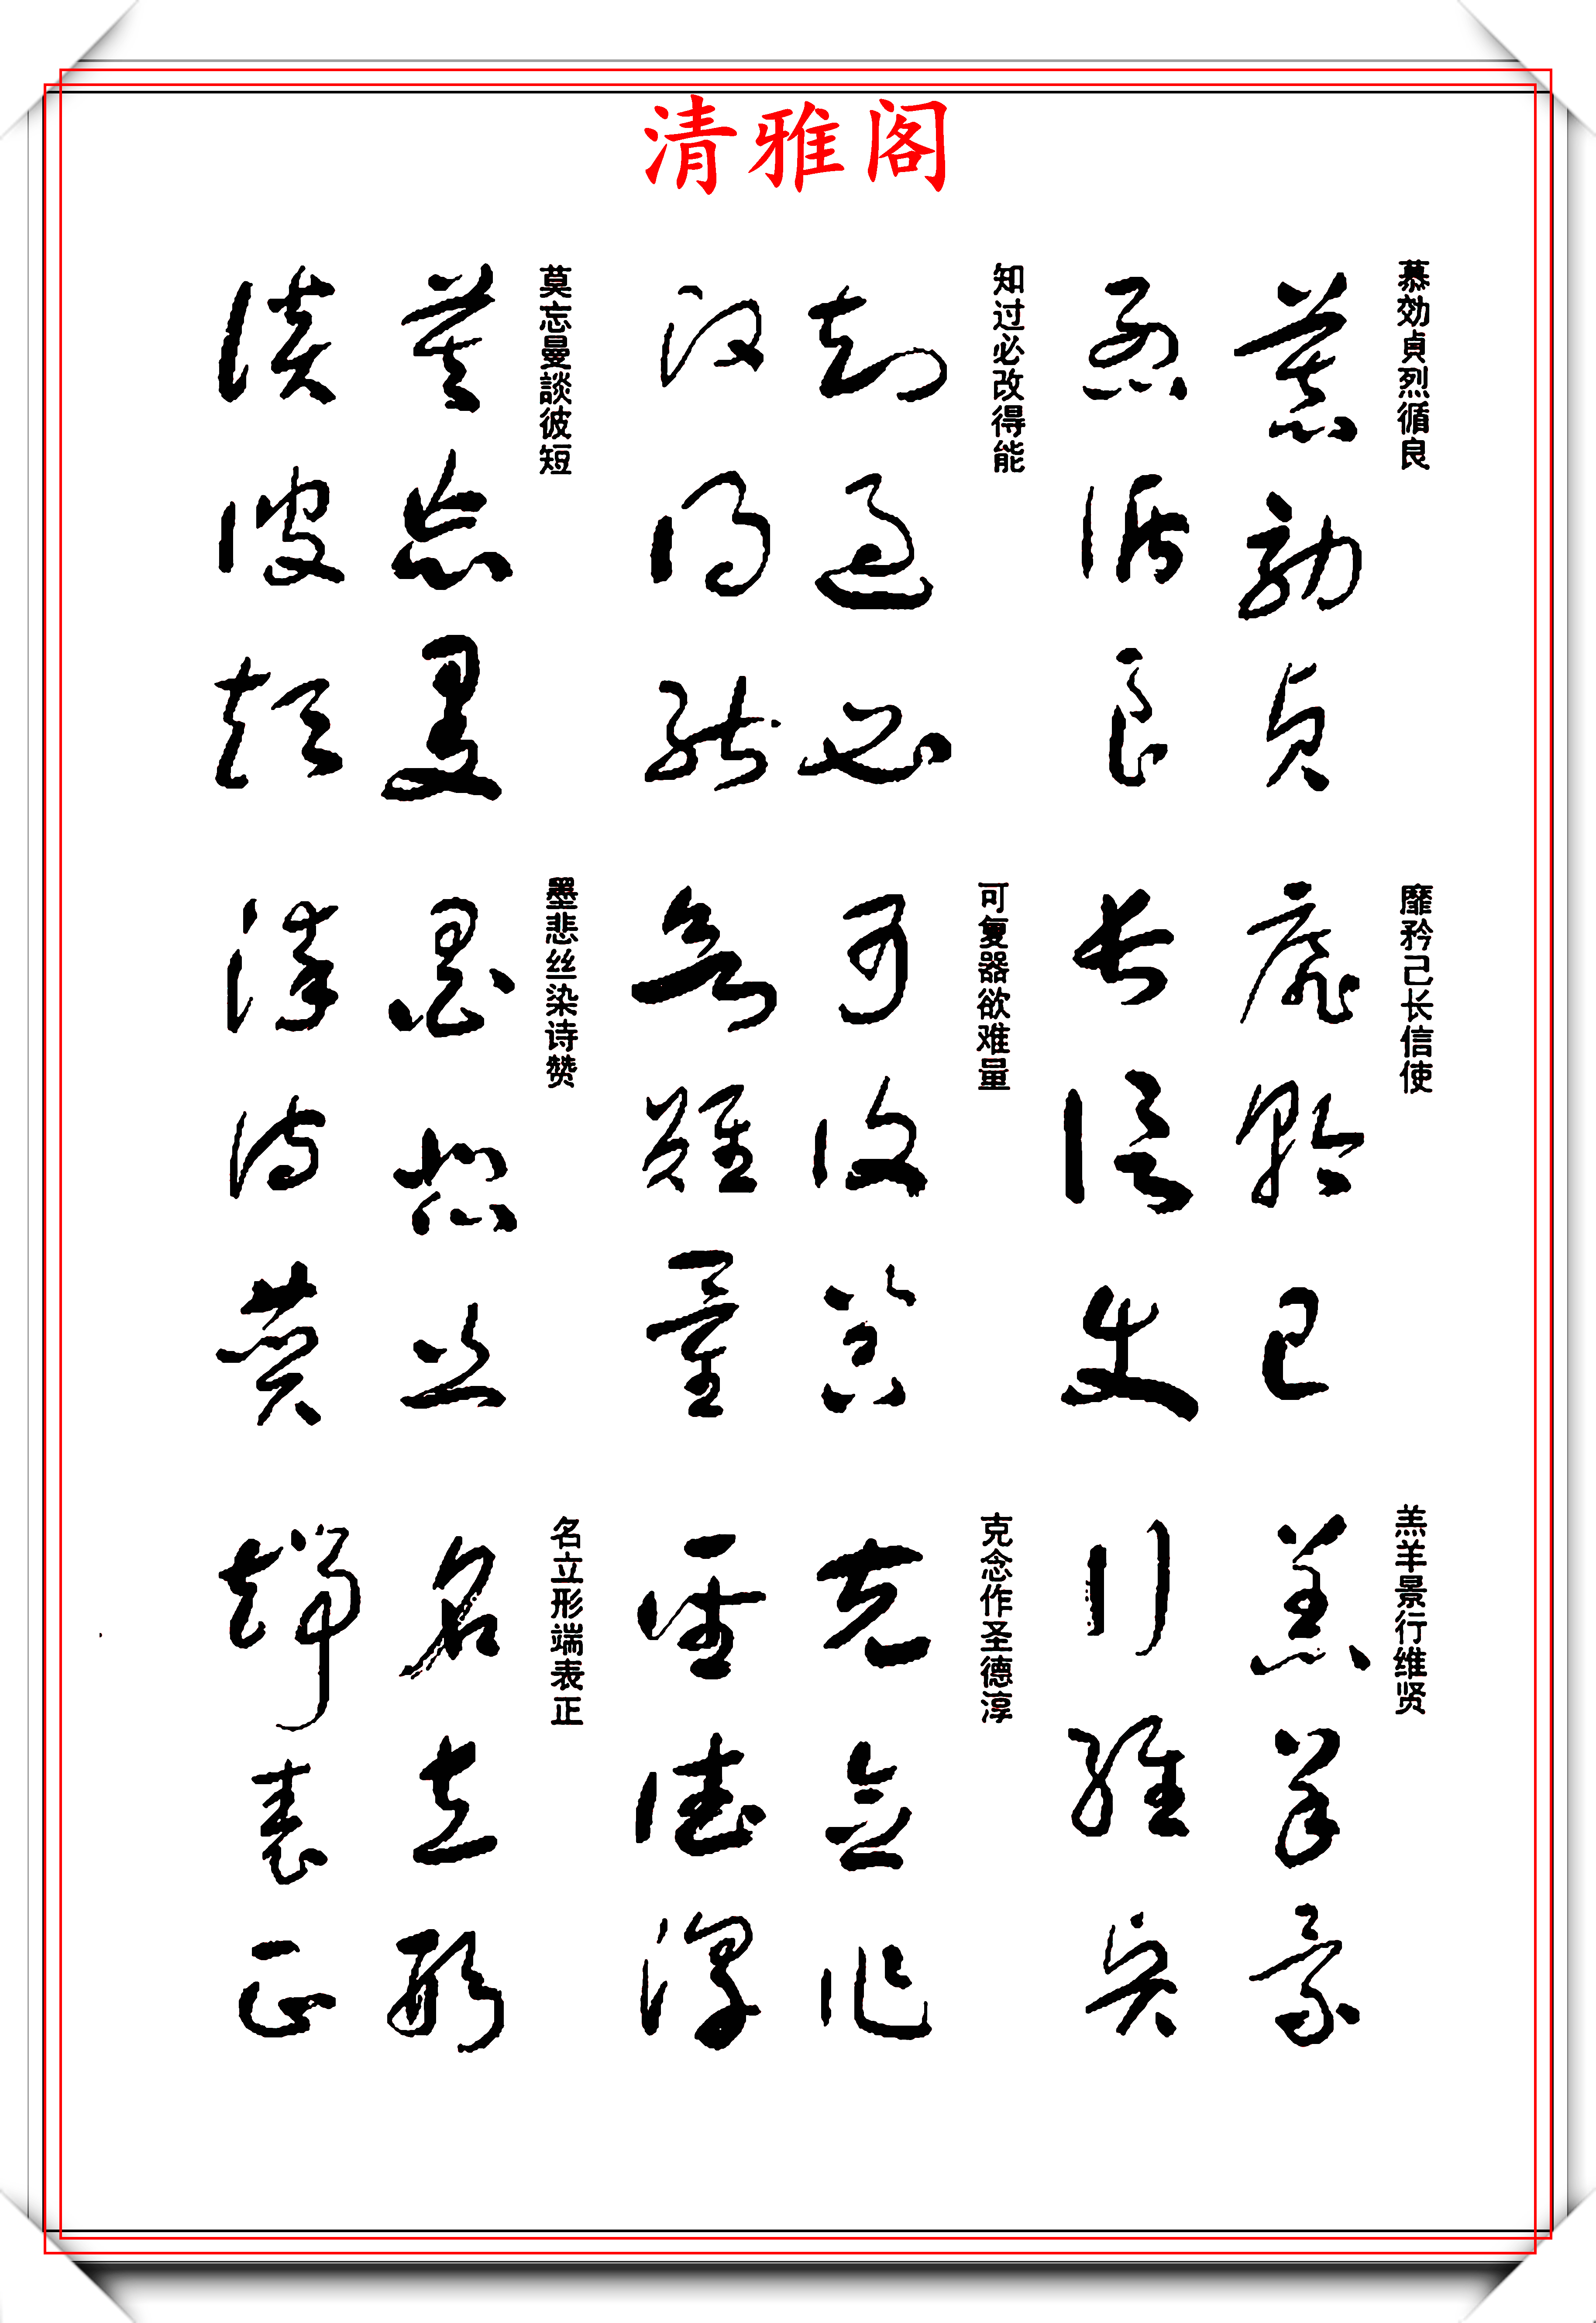 清雅阁
慕効貞烈循良
慕効貞
烈循良
知过必改得能
知過必
改得能
莫忘曼談彼短
莫忘曼
談彼短
靡矜己长信使
靡矜己
長信使
可复器欲难量
可復器
欲難量
墨悲丝染诗赞
墨悲絲
染詩讚
羔羊景行维贤
羔羊景
行維賢
克念作圣德淳
克念作
聖德淳
名立形端表正
名立形
端表正